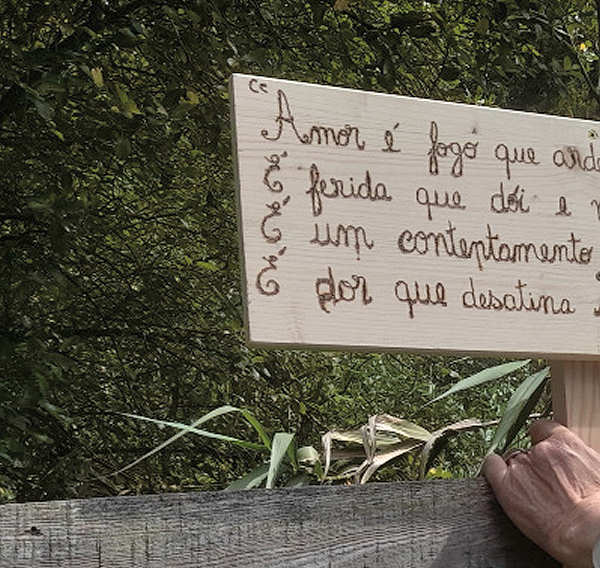 “Amor é fogo que arde
É ferida que dói e
É um contentamento
É dor que desatina